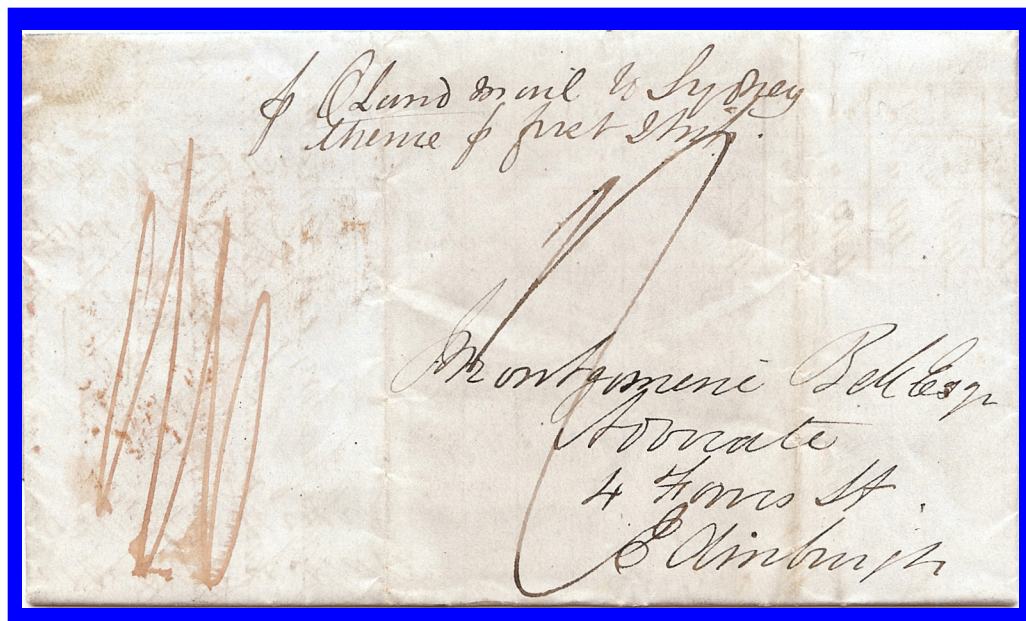 p OLand mail to Sydney
thence p first Ship.
Montgomerie Bell Esqr
Advocate
4 Forres St.
Edinburgh